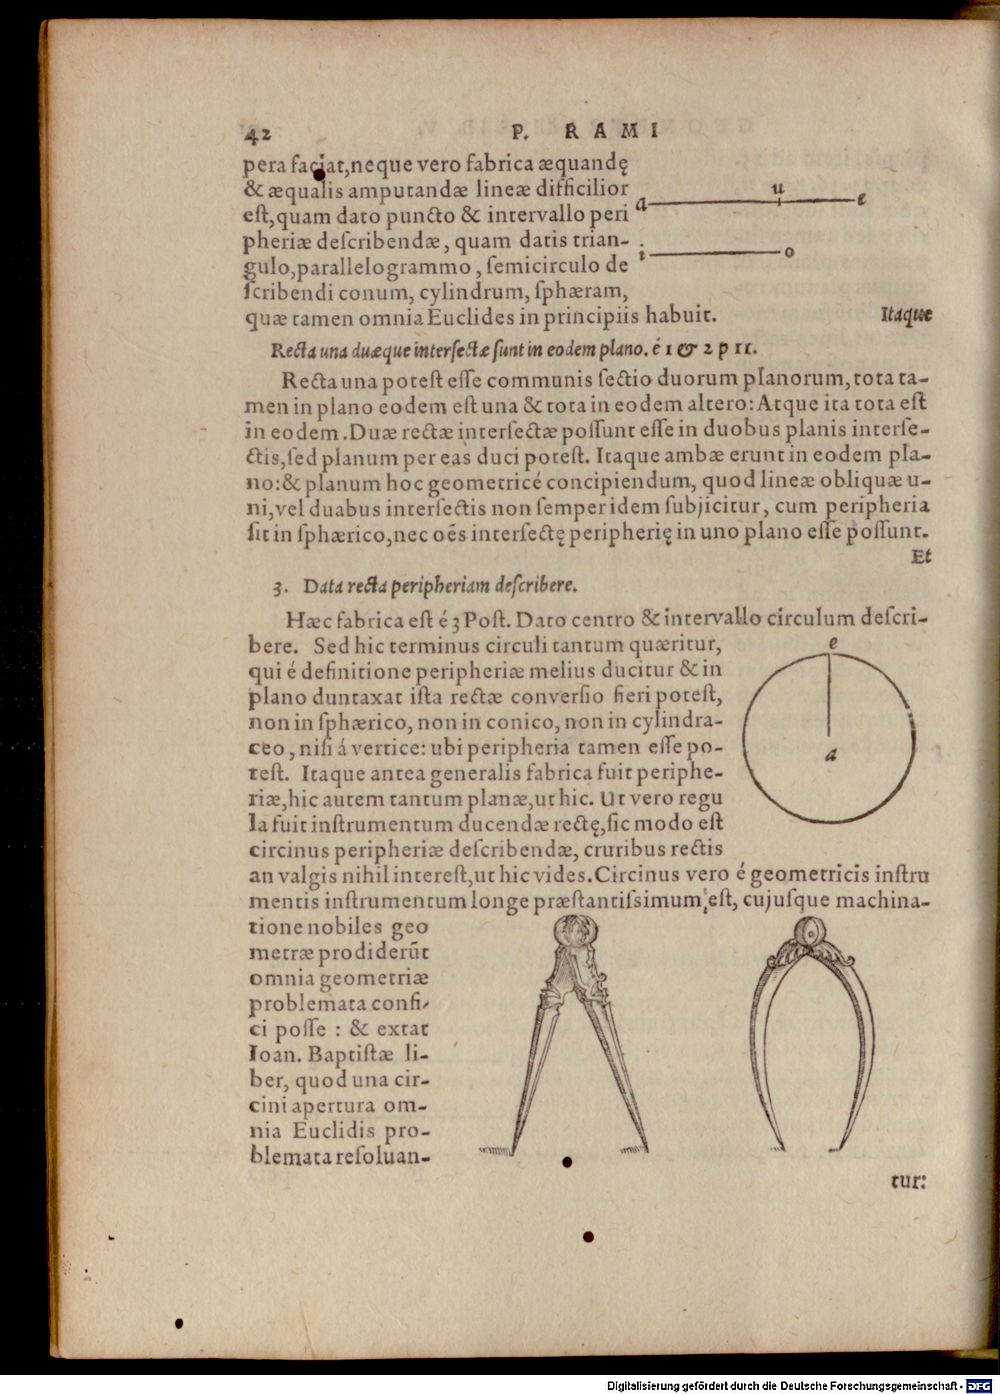 42 P. RAMI
pera faciat, neque vero fabrica æquandę
& æqualis amputandæ lineæ difficilior
est, quam dato puncto & intervallo peri
pheriæ describendæ, quam datis trian-
gulo, parallelogrammo, semicirculo de
scribendi conum, cylindrum, sphæram,
quæ tamen omnia Euclides in principiis habuit.
a u e
i o
Itaque
Recta una duæque intersectæ sunt in eodem plano. é 1 & 2 p 11.
Recta una potest esse communis sectio duorum planorum, tota ta-
men in plano eodem est una & tota in eodem altero: Atque ita tota est
in eodem. Duæ rectæ intersectæ possunt esse in duobus planis interse-
ctis, sed planum per eas duci potest. Itaque ambæ erunt in eodem pla-
no: & planum hoc geometricé concipiendum, quod lineæ obliquæ u-
ni, vel duabus intersectis non semper idem subjicitur, cum peripheria
sit in sphærico, nec oẽs intersectę peripherię in uno plano esse possunt.
Et
3. Data recta peripheriam describere.
Hæc fabrica est é 3 Post. Dato centro & intervallo circulum descri-
bere. Sed hic terminus circuli tantum quæritur,
qui é definitione peripheriæ melius ducitur & in
plano duntaxat ista rectæ conversio fieri potest,
non in sphærico, non in conico, non in cylindra-
ceo, nisi á vertice: ubi peripheria tamen esse po-
test. Itaque antea generalis fabrica fuit periphe-
riæ, hic autem tantum planæ, ut hic. Ut vero regu
la fuit instrumentum ducendæ rectę, sic modo est
circinus peripheriæ describendæ, cruribus rectis
e
a
an valgis nihil interest, ut hic vides. Circinus vero é geometricis instru
mentis instrumentum longe præstantissimum est, cujusque machina-
tione nobiles geo
metræ prodiderũt
omnia geometriæ
problemata confi-
ci posse : & extat
Ioan. Baptistæ li-
ber, quod una cir-
cini apertura om-
nia Euclidis pro-
blemata resoluan-
tur:
Digitalisierung gefördert durch die Deutsche Forschungsgemeinschaft - DFG